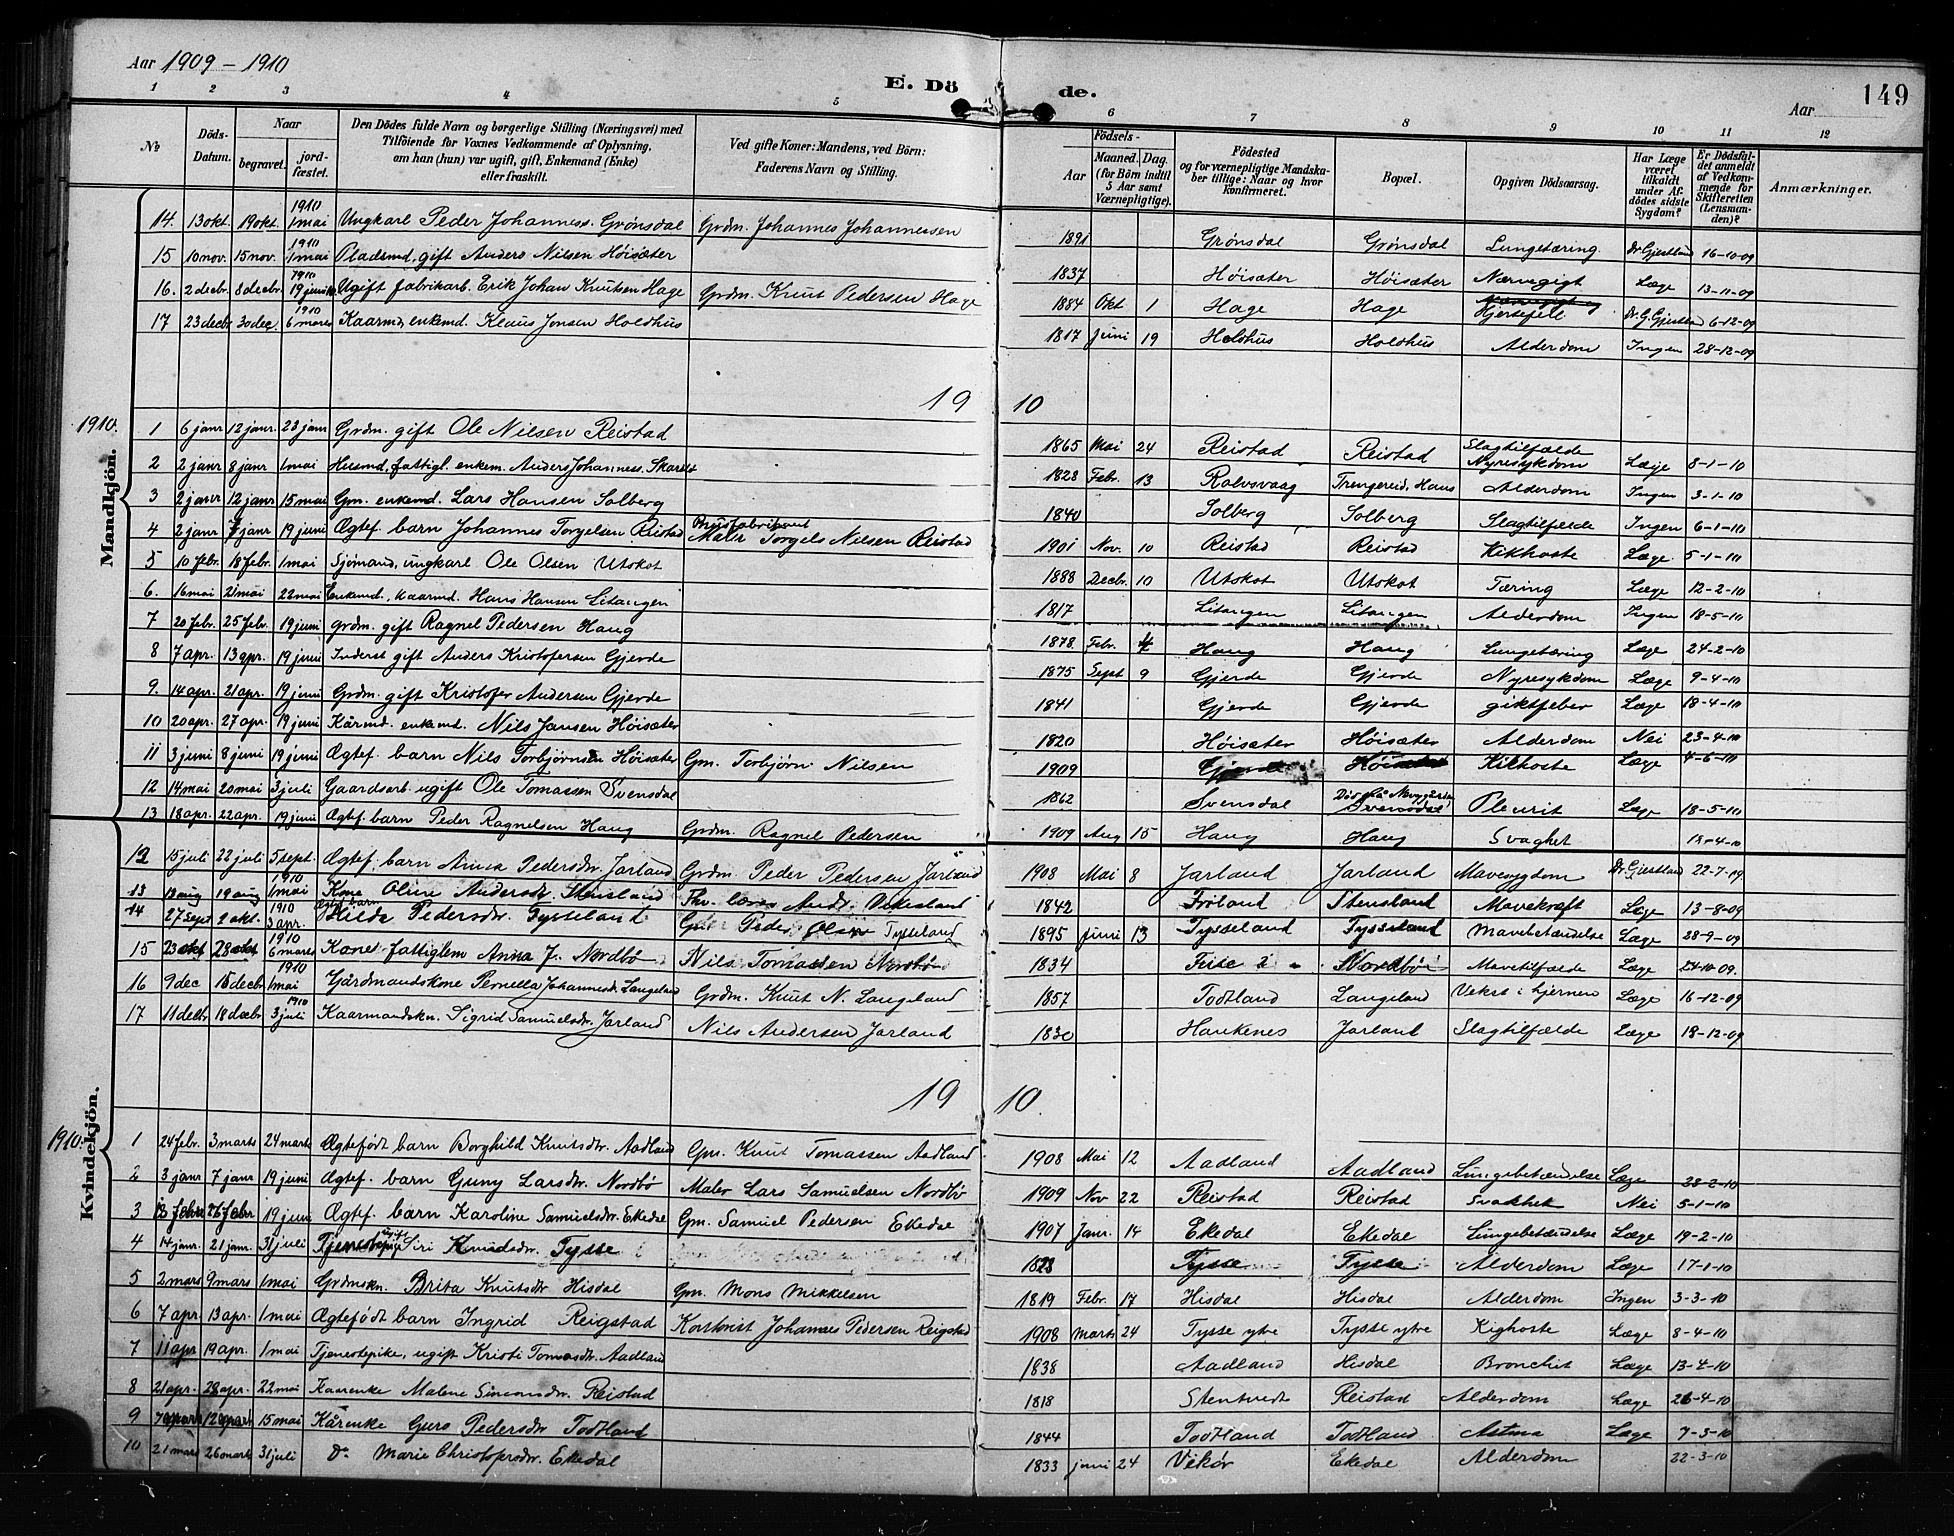 Aar 1909 - 1910
E. Dö de.
Aar
149
1 2 3 4 5 6 7 8 9 10 11 12
№
Döds-Datum.
Naar
begravet.
jord-fæstet.
Den Dödes fulde Navn og borgerlige Stilling (Næringsvei) med
Tilföiende for Voxnes Vedkommende af Oplysning,
om han (hun) var ugift, gift, Enkemand (Enke)
eller fraskilt.
Ved gifte Koner: Mandens, ved Börn:
Faderens Navn og Stilling.
Födsels-
Aar
Maaned. Dag.
(for Börn indtil
5 Aar samt
Værnepligtige).
Födested
og for værnepligtige Mandska-
ber tillige: Naar og hvor
konfirmeret.
Bopæl.
Opgiven Dödsaarsag.
Har Læge
været
tilkaldt
under Af-
dödes sidste
Sygdom?
Er Dödsfal-
det anmeldt
af Vedkom-
mende for
Skifteretten
(Lensman-
den)?
Anmærkninger.
14. 13 okt. 19 okt. 1910 1 mai Ungkarl Peder Johanness. Grønsdal Grdm. Johannes Johannessen 1891 Grønsdal Grønsdal Lungetæring. Dr Gjestland 16-10-09
15 10 nov. 15 nov. 1910 1 mai Pladsmd. gift Anders Nilsen Høisæter 1837 Høisæter Høisæter Nærvegigt Læge 13-11-09
16. 2 decbr. 8 decbr. 1910 19 juni Ugift fabrikarb. Erik Johan Knutsen Hage Grdm. Knut Pedersen Hage 1884 Okt 1 Hage Hage Hjertefeil Dr. G. Gjestland 6-12-09
17 23 decbr 30 dec. 1910 6 mars Kaarmd, enkemd. Klaus Jonsen Holdhus 1817 Juni 19 Holdhus Holdhus Alderdom Ingen 28-12-09
19 10
1910.
Mandkjön.
1 6 janr 12 janr. 23 janr Grdm. gift Ole Nilsen Reistad 1865 Mai 24 Reistad Reistad Slagtilfælde Nyresykdom Læge 8-1-10
2 2 janr 8 janr 1 mai Husmd, fattigl. enkem. Anders Johanness. 1828 Febr. 13 Rolvsvaag Trengereid, Haus Alderdom Ingen 3-1-10
3 2 janr 12 janr 15 mai Gm. enkemd. Lars Hansen Solberg 1840 Solberg Solberg Slagtilfelde Ingen 6-1-10
4 2 janr 7 janr 19 juni Ægtef. barn Johannes Torgelsen Reistad Maler Torgels Nilsen Reistad 1901 Nov. 10 Reistad Reistad Kikhoste Læge 5-1-10
5 10 febr. 18 febr. 1 mai Sjömand, ungkarl Ole Olsen Utskot 1888 Decbr. 10 Utskot Utskot Tæring Læge 12-2-10
6. 16 mai 21 mai 22 mai Enkemd, kaarmd. Hans Hansen Litangen 1817 Litangen Litangen Alderdom Ingen 18-5-10
7 20 febr. 25 febr. 19 juni grdm. gift Ragnel Pedersen Haug 1878 Febr. 4 Haug Haug Lungetæring Læge 24-2-10
8 7 apr. 13 apr. 19 juni Inderst gift Anders Kristofersen Gjerde 1875 Sept 9 Gjerde Gjerde Nyresykdom Læge 9-4-10
9. 14 apr. 21 apr. 19 juni Grdm. gift Kristofer Andersen Gjerde 1841 Gjerde Gjerde giktfeber Læge 18-4-10
10 20 apr. 27 apr. 19 juni Kårmd. enkemd. Nils Jansen Høisæter 1820 Høisæter Høisæter Alderdom Nei 23-4-10
11 3 juni 8 juni 19 juni Ægtef. barn Nils Torbjørnsen Høisæter Gm. Torbjørn Nilsen 1909 Høisæter Kikhoste Læge 4-6-10
12 14 mai 20 mai 3 juli Gaardsarb. ugift Ole Tomassen Svensdal 1862 Svensdal Svensdal Pleurit Læge 18-5-10
13 18 apr. 22 apr. 19 juni Ægtef. barn Peder Ragnelsen Haug Grdm. Ragnel Pedersen 1909 Aug 15 Haug Haug Svaghet
12 15 juli 22 juli 5 sept. Ægtef. barn Anna Pedersdtr. Jarland Grdm. Peder Pedersen Jarland 1908 Mai 8 Jarland Jarland Mavesygdom Dr. Gjestland 22-7-09
13 13 aug 19 aug 1910 1 mai Kone Oline Andersdtr. Stensland 1842 Stensland Mavekræft Læge 13-8-09
14 27 sept 2 okt. 1910 3 apr. Ægtef. barn Hilda Pedersdtr. Tysseland Peder Tysseland 1895 Juni 13 Tysseland Tysseland Mavebetændelse Læge 28-9-09
15 23 okt 28 okt 1910 6 mars Kone, fattiglem Anna J. Nordbø Nils Tomassen Nordbø 1834 Nordbø Mavetilfælde Læge 24-10-09.
16 9 dec 15 decbr. 1910 1 mai Gårdmandskone Pernella Johannesdr. Langeland Grdm. Knut N. Langeland 1857 Todtland Langeland Vekst i hjernen Læge 16-12-09
17 11 decbr 18 decbr. 1910 3 juli Kaarmandskn. Sigrid Samuelsdr. Jarland Nils Andersen Jarland 1830 Haukenes Jarland Slagtilfælde Læge 18-12-09
19 10.
1910.
Kvindekjön.
1 24 febr. 3 marts 24 marts Ægtefødt barn Borghild Knutsdtr. Aadland Gm. Knut Tomassen Aadland 1908 Mai 12 Aadland Aadland Lungebetændelse Læge 28-2-10
2 3 janr 7 janr 19 juni Ægtef. barn Guny Larsdtr. Nordbø Maler Lars Samuelsen Nordbø 1909 Nov 22 Reistad Reistad Svakhet Nei 5-1-10
3 26 febr 19 juni Ægtef. barn Karoline Samuelsdtr. Ekedal Gm. Samuel Pedersen Ekedal 1907 Janr. 14 Ekedal Ekedal Lungebetændelse Læge 19-2-10
4 14 janr. 21 janr. 31 juli Tjenestepige ugift Siri Knudsdtr. Tysse Tysse Tysse Alderdom Læge 17-1-10
5 2 mars 9 mars 1 mai Grdmskn. Brita Knutsdtr Hisdal Gm. Mons Mikkelsen 1819 Febr. 17 Hisdal Hisdal Alderdom Ingen 3-3-10
6 7 apr. 13 apr. 1 mai Ægtefødt barn Ingrid Reigstad Johannes Pedersen Reigstad 1908 Marts 24 Tysse ytre Tysse ytre Kighoste Læge 8-4-10
7 11 apr 19 apr. 1 mai Tjenestepike, ugift Kristi Tomasdtr. Aadland 1838 Aadland Hisdal Bronchit Læge 13-4-10
8 21 apr. 28 apr. 22 mai Kaarenke Malene Simonsdtr. Reistad 1818 Stentvedt Reistad Alderdom Læge 26-4-10
9 15 mai Kårenke Guro Pedersdtr. Todtland 1844 Todtland Todtland Astma Læge 7-3-10
10 21 mars 26 marts 31 juli Do Marie Christofersdtr. Ekedal 1833 juni 24 Vikør Ekedal Alderdom 22-3-10